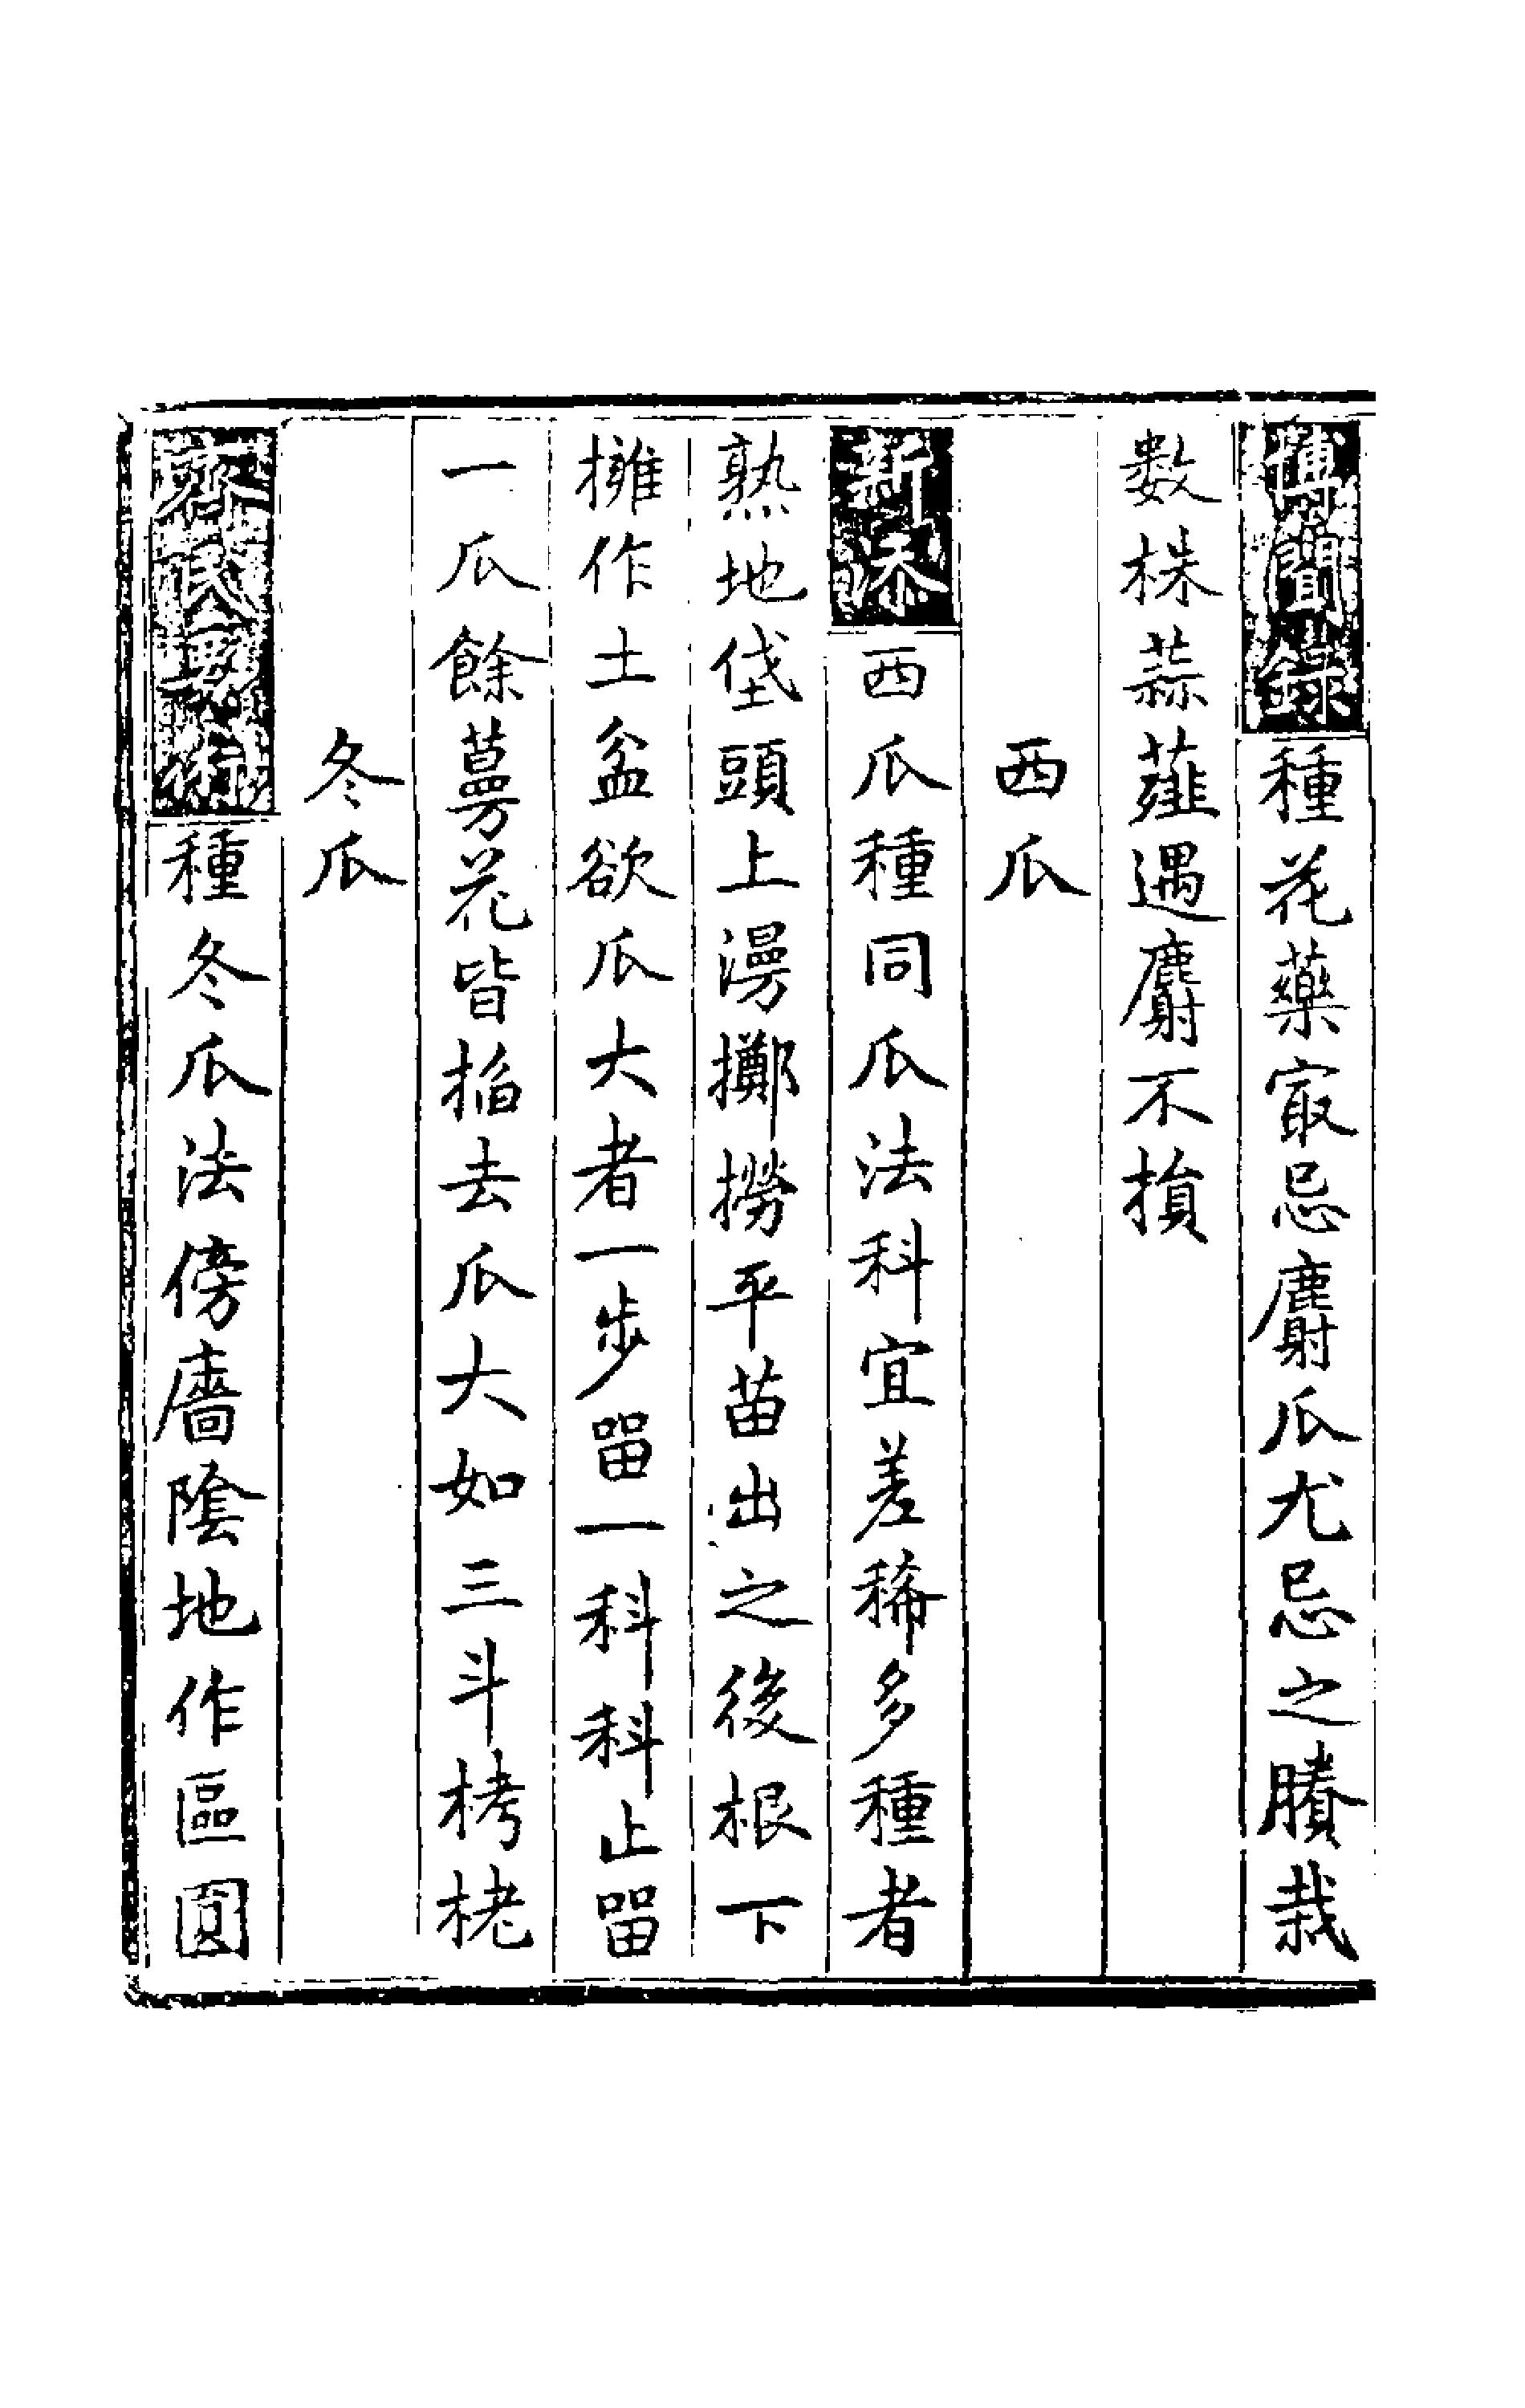 博聞録種花藥㝡忌麝瓜尤忌之賸栽
數株蒜薤遇麝不損
西瓜
新添西瓜種同瓜法科宜差稀多種者
熟地垡頭上漫擲撈平苗出之後根下
擁作土盆欲瓜大者一步留一科科止留
一瓜餘蔓花皆掐去瓜大如三斗栲栳
冬瓜
齊民要術種冬瓜法傍牆陰地作區圓